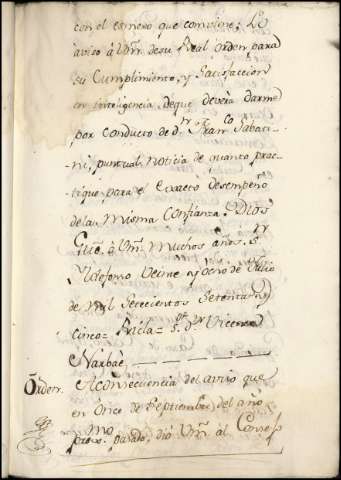 con el esmero que conviene; Lo
aviso à Vm. de su Real orden para
su Cumplimiento, y Satisfaccion
en inteligencia de que deverà darme
por conducto de dn. Franco. Sabati-
-ni, puntual noticia de quanto prac-
-tique para el exacto desempeño
de la misma confianza. Dios
Gue. à Vm. muchos años. Sn.
Yldefonso Veinte y ocho de Julio
de mil setecientos setenta y
cinco= Avila= Sor. Dn. Vicente
Narbaè,
Òrden. A consecuencia del aviso que
en once de Septiembre del año
proxmo. pasado, diò Vm. al Consejo